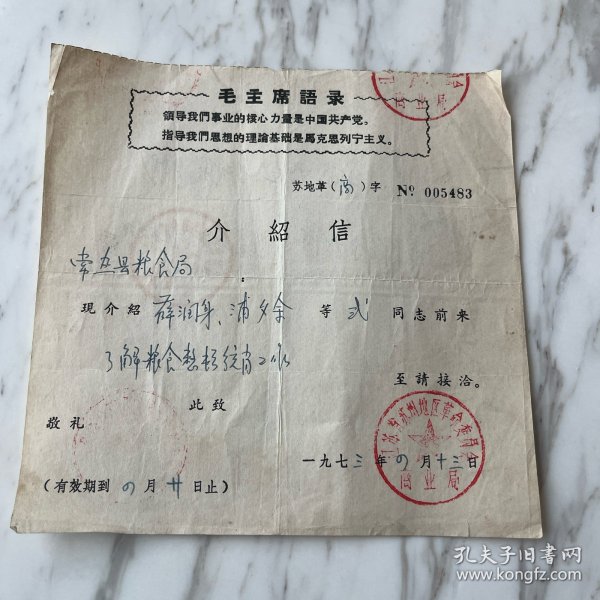 毛主席語录
領导我們事业的核心力量是中国共产党。
指导我們思想的理論基础是馬克思列宁主义。
商业局
苏地革(商)字 No 005483
介紹信
常熟县粮食局
现介紹 薛润身、浦夕余 等 弍 同志前来
了解粮食 工作
至請接洽。
此致
敬礼
江苏省苏州地区革命委员会
商业局
一九七三年四月十三日
(有效期到 四月廿日止)
孔夫子旧书网
www.kongfz.com